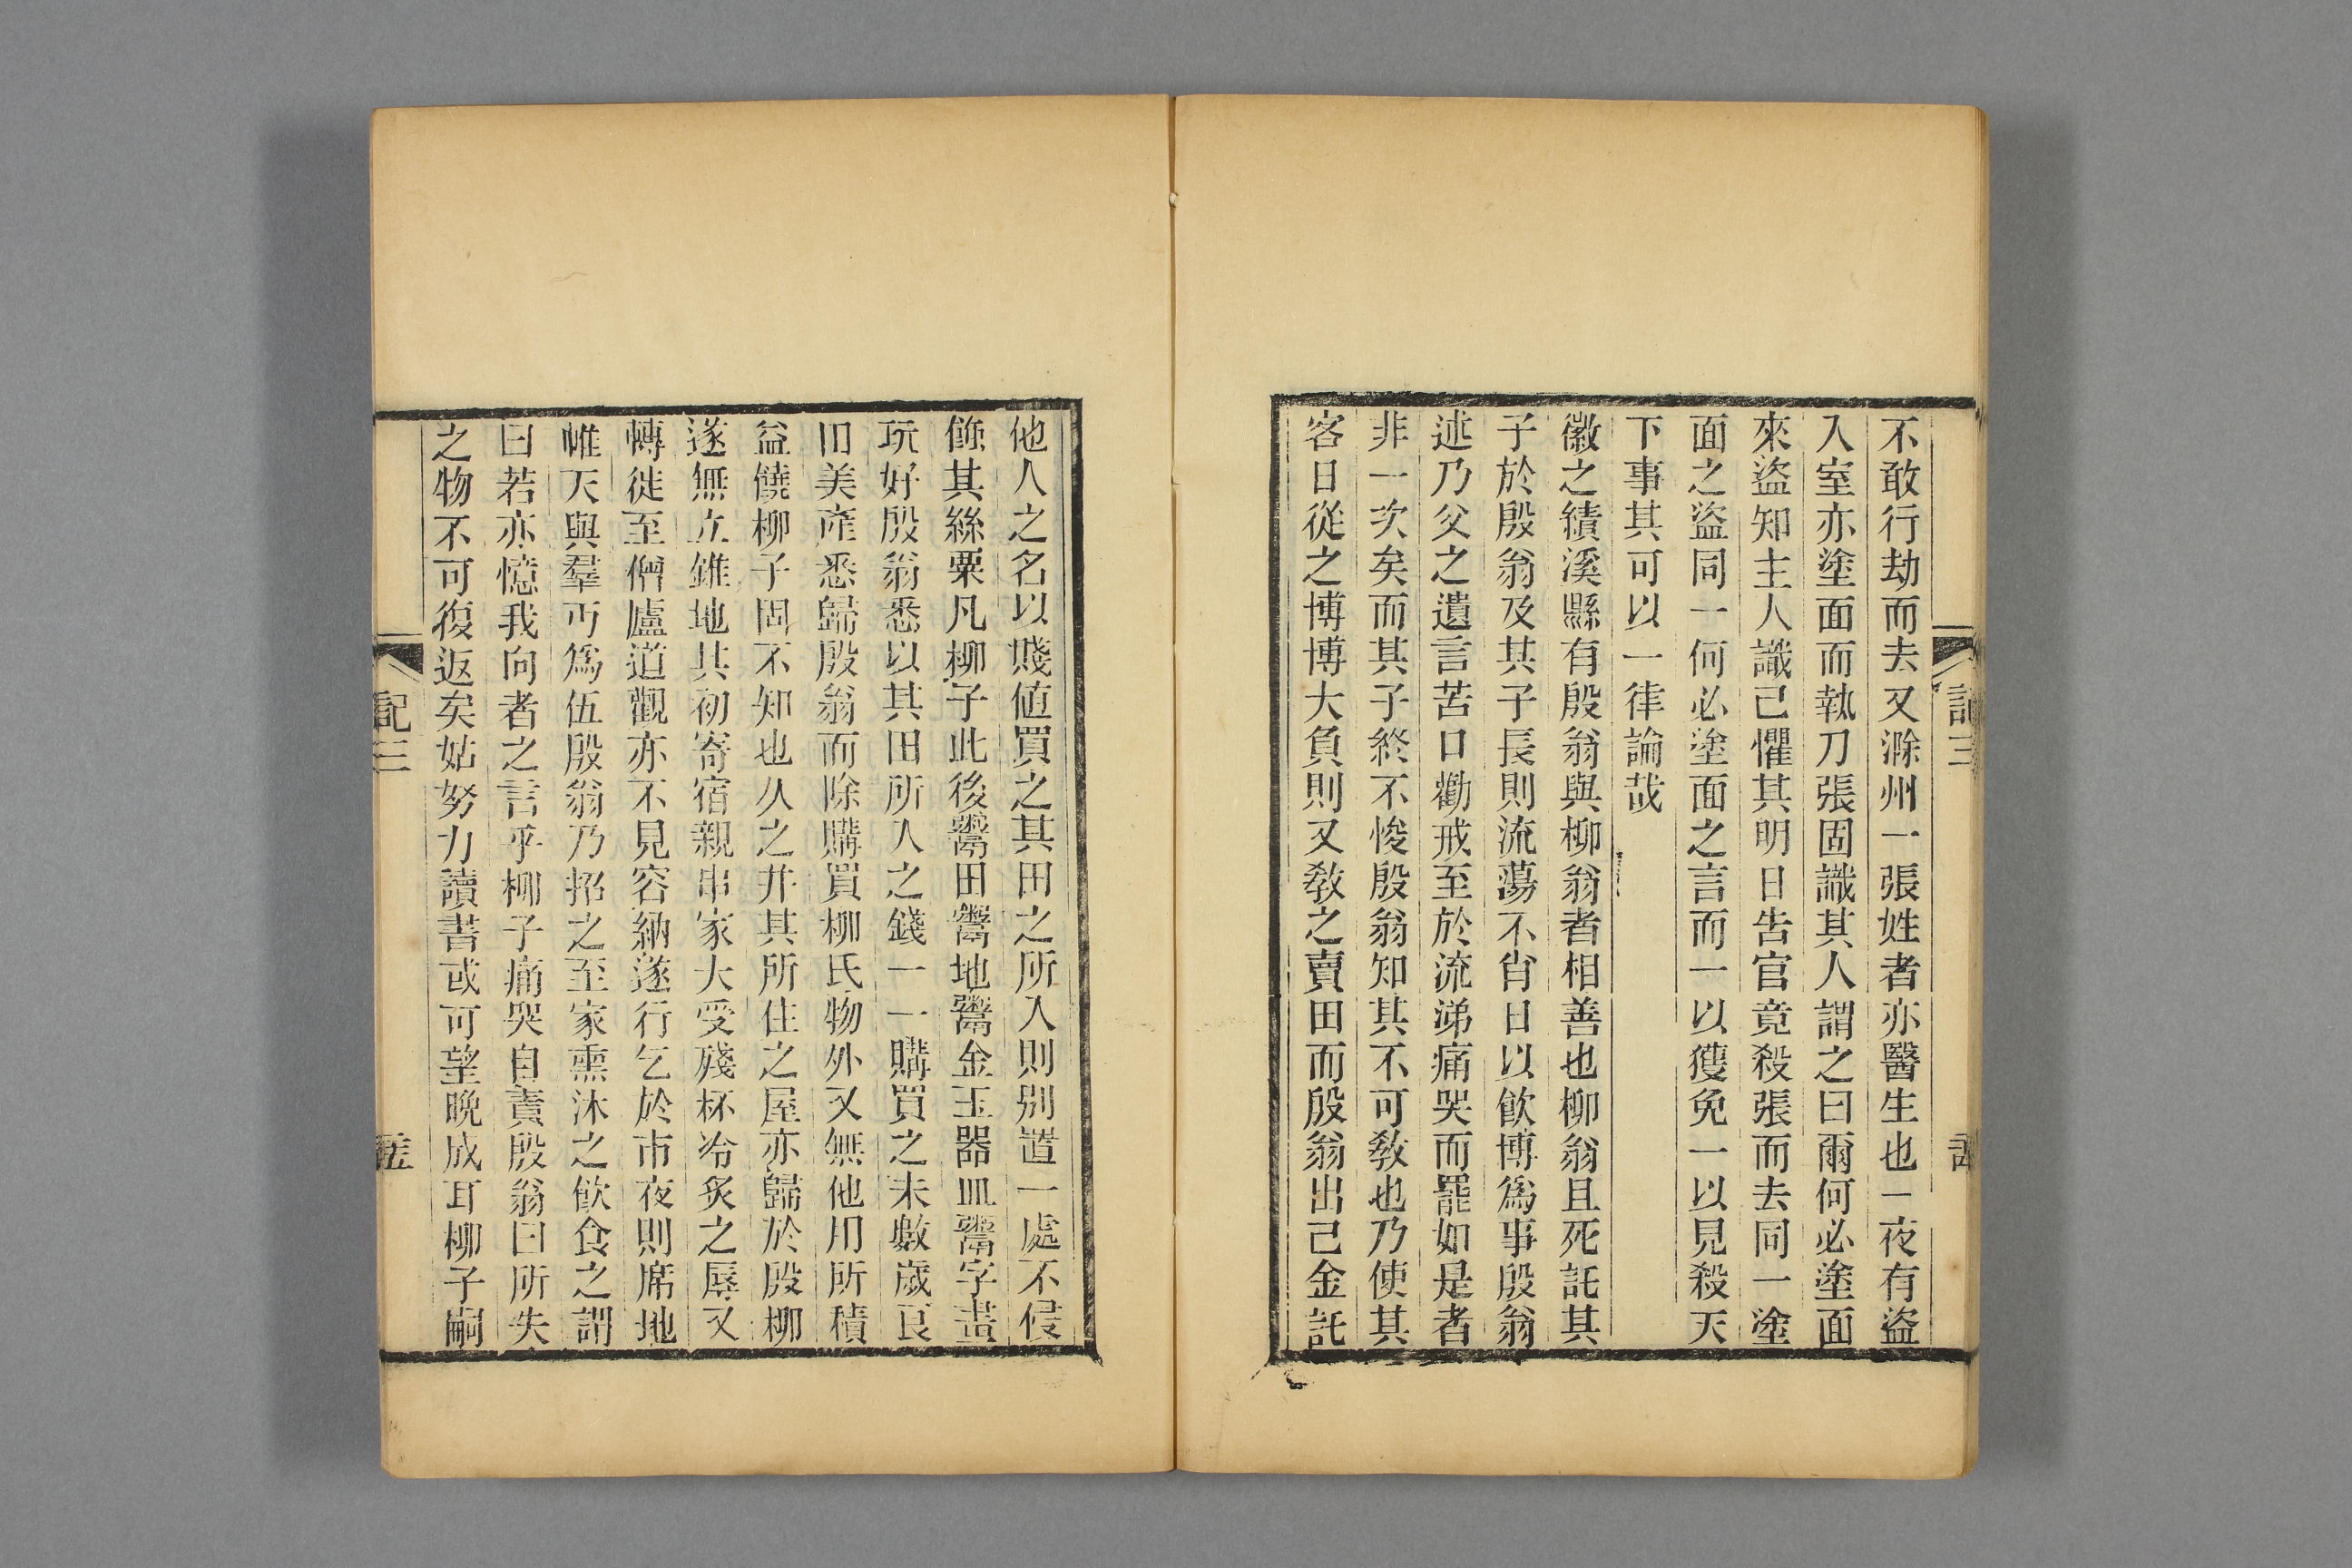 不敢行劫而去又滁州一張姓者亦醫生也一夜有盜
入室亦塗面而執刀張固識其人謂之曰爾何必塗面
來盜知主人識己懼其明日告官竟殺張而去同一塗
面之盜同一何必塗面之言而一以獲免一以見殺天
下事其可以一律論哉
徽之績溪縣有殷翁與柳翁者相善也柳翁且死託其
子於殷翁及其子長則流蕩不肖日以飲博為事殷翁
述乃父之遺言苦口勸戒至於流涕痛哭而罷如是者
非一次矣而其子終不悛殷翁知其不可教也乃使其
客日從之博博大負則又教之賣田而殷翁出己金託
他人之名以賤值買之其田之所入則別置一處不侵
其絲粟凡柳子此後鬻田鬻地鬻金玉器皿鬻字畫
玩好殷翁悉以其田所入之錢一一購買之未數歲良
田美產悉歸殷翁而除購買柳氏物外又無他用所積
益饒柳子固不知也久之并其所住之屋亦歸於殷柳
遂無立錐地其初寄宿親串家大受殘杯冷炙之辱又
轉徙至僧廬道觀亦不見容納遂行乞於市夜則席地
帷天與羣丐為伍殷翁乃招之至家熏沐之飲食之謂
曰若亦憶我向者之言乎柳子痛哭自責殷翁曰所失
之物不可復返矣姑努力讀書或可望晚成耳柳子嗣
記三